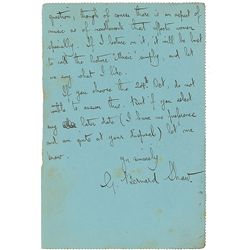 question, though of course there is an aspect of
music as of needlework that affects women
specially. If I lecture on it, it will be best
to call the lecture "Music" simply, and let
me say what I like.
If you choose the 20th Oct, do not
trouble to answer this. But if you select
any later date (I have no preference
and am quite at your disposal) let me
know.
Yrs sincerely
G. Bernard Shaw.